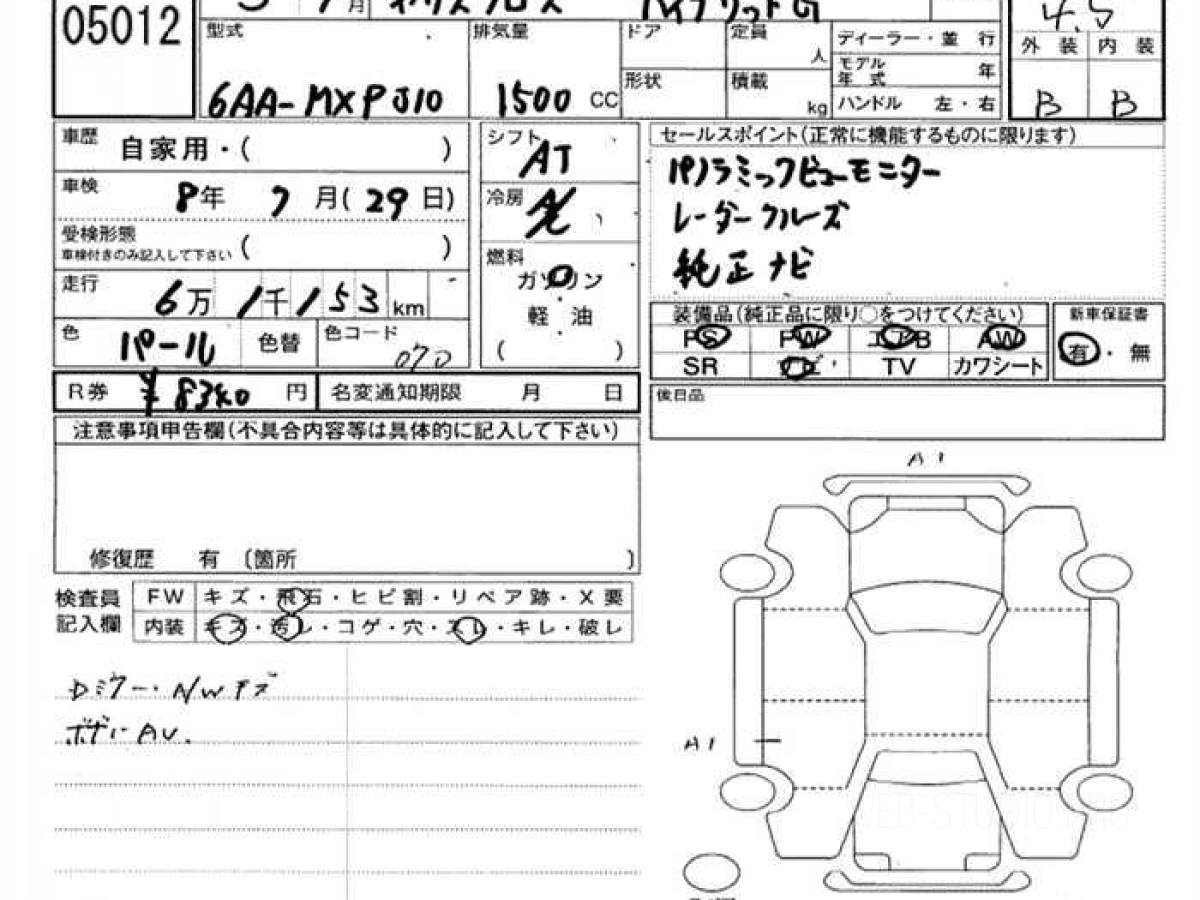 05012
5 7月 ヤリスクロス ハイブリッドG
4.5
型式 排気量 ドア 定員 人
ディーラー・並 行
外 装 内 装
モデル年 式 年
形状 積載 kg
6AA-MXPJ10 1500 CC
ハンドル 左・右
B B
車歴 自家用・( )
シフト AT
セールスポイント(正常に機能するものに限ります)
パノラミックビューモニター
車検 8年 7月(29日)
冷房
レーダークルーズ
受検形態
車検付きのみ記入して下さい ( )
燃料
純正ナビ
走行 6万1千153km
ガソリン
軽・油
( )
装備品(純正品に限り○をつけてください)
新車保証書
PS PW エアB AW
有・無
SR ナビ TV カワシート
色 パール 色替 色コード 070
R券 ¥8340 円 名変通知期限 月 日
後日品
注意事項申告欄(不具合内容等は具体的に記入して下さい)
修復歴 有 〔箇所 〕
A1
検査員
記入欄
FW キズ・飛石・ヒビ割・リペア跡・X要
内装 キズ・汚レ・コゲ・穴・スレ・キレ・破レ
Dミラー・N/Wキズ
ボデーAU.
A1
WEB-STUDIO.PRO